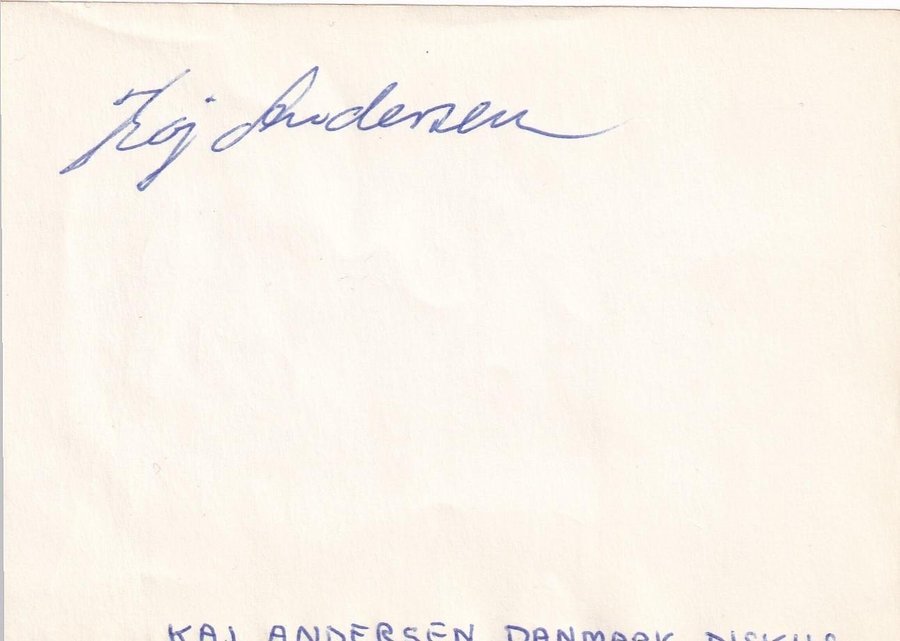 Kaj Andersen
KAJ ANDERSEN DANMARK DISKUS